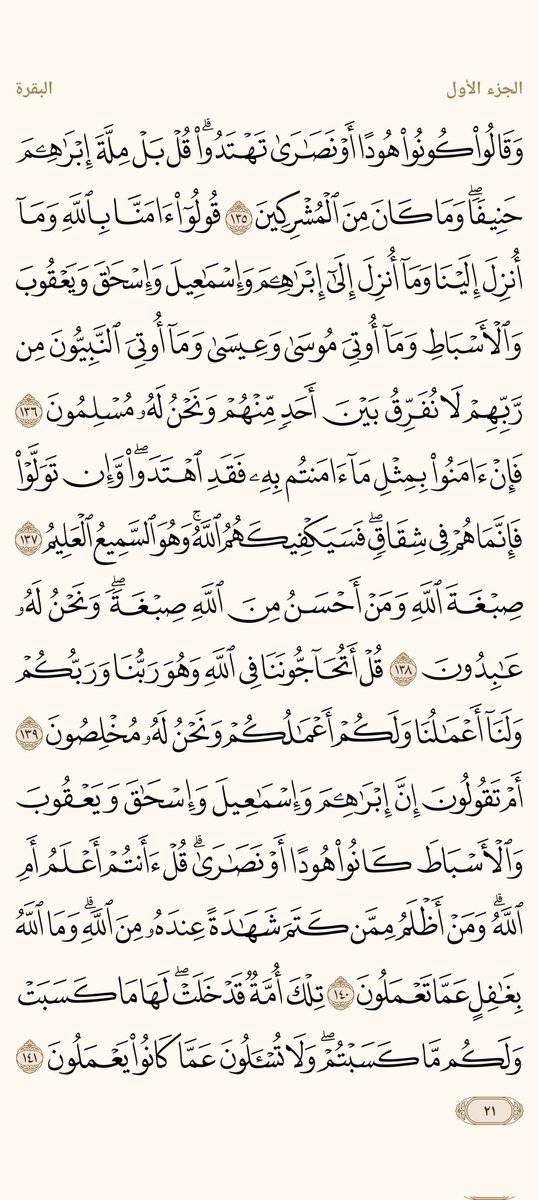 الجزء الأول
البقرة
وَقَالُواْ كُونُواْ هُودًا أَوۡ نَصَٰرَىٰ تَهۡتَدُواْۗ قُلۡ بَلۡ مِلَّةَ إِبۡرَٰهِـۧمَ
حَنِيفٗاۖ وَمَا كَانَ مِنَ ٱلۡمُشۡرِكِينَ ١٣٥ قُولُوٓاْ ءَامَنَّا بِٱللَّهِ وَمَآ
أُنزِلَ إِلَيۡنَا وَمَآ أُنزِلَ إِلَىٰٓ إِبۡرَٰهِـۧمَ وَإِسۡمَٰعِيلَ وَإِسۡحَٰقَ وَيَعۡقُوبَ
وَٱلۡأَسۡبَاطِ وَمَآ أُوتِيَ مُوسَىٰ وَعِيسَىٰ وَمَآ أُوتِيَ ٱلنَّبِيُّونَ مِن
رَّبِّهِمۡ لَا نُفَرِّقُ بَيۡنَ أَحَدٖ مِّنۡهُمۡ وَنَحۡنُ لَهُۥ مُسۡلِمُونَ ١٣٦
فَإِنۡ ءَامَنُواْ بِمِثۡلِ مَآ ءَامَنتُم بِهِۦ فَقَدِ ٱهۡتَدَواْۖ وَّإِن تَوَلَّوۡاْ
فَإِنَّمَا هُمۡ فِي شِقَاقٖۖ فَسَيَكۡفِيكَهُمُ ٱللَّهُۚ وَهُوَ ٱلسَّمِيعُ ٱلۡعَلِيمُ ١٣٧
صِبۡغَةَ ٱللَّهِ وَمَنۡ أَحۡسَنُ مِنَ ٱللَّهِ صِبۡغَةٗۖ وَنَحۡنُ لَهُۥ
عَٰبِدُونَ ١٣٨ قُلۡ أَتُحَآجُّونَنَا فِي ٱللَّهِ وَهُوَ رَبُّنَا وَرَبُّكُمۡ
وَلَنَآ أَعۡمَٰلُنَا وَلَكُمۡ أَعۡمَٰلُكُمۡ وَنَحۡنُ لَهُۥ مُخۡلِصُونَ ١٣٩
أَمۡ تَقُولُونَ إِنَّ إِبۡرَٰهِـۧمَ وَإِسۡمَٰعِيلَ وَإِسۡحَٰقَ وَيَعۡقُوبَ
وَٱلۡأَسۡبَاطَ كَانُواْ هُودًا أَوۡ نَصَٰرَىٰۗ قُلۡ ءَأَنتُمۡ أَعۡلَمُ أَمِ
ٱللَّهُۗ وَمَنۡ أَظۡلَمُ مِمَّن كَتَمَ شَهَٰدَةً عِندَهُۥ مِنَ ٱللَّهِۗ وَمَا ٱللَّهُ
بِغَٰفِلٍ عَمَّا تَعۡمَلُونَ ١٤٠ تِلۡكَ أُمَّةٞ قَدۡ خَلَتۡۖ لَهَا مَا كَسَبَتۡ
وَلَكُم مَّا كَسَبۡتُمۡۖ وَلَا تُسۡـَٔلُونَ عَمَّا كَانُواْ يَعۡمَلُونَ ١٤١
٢١